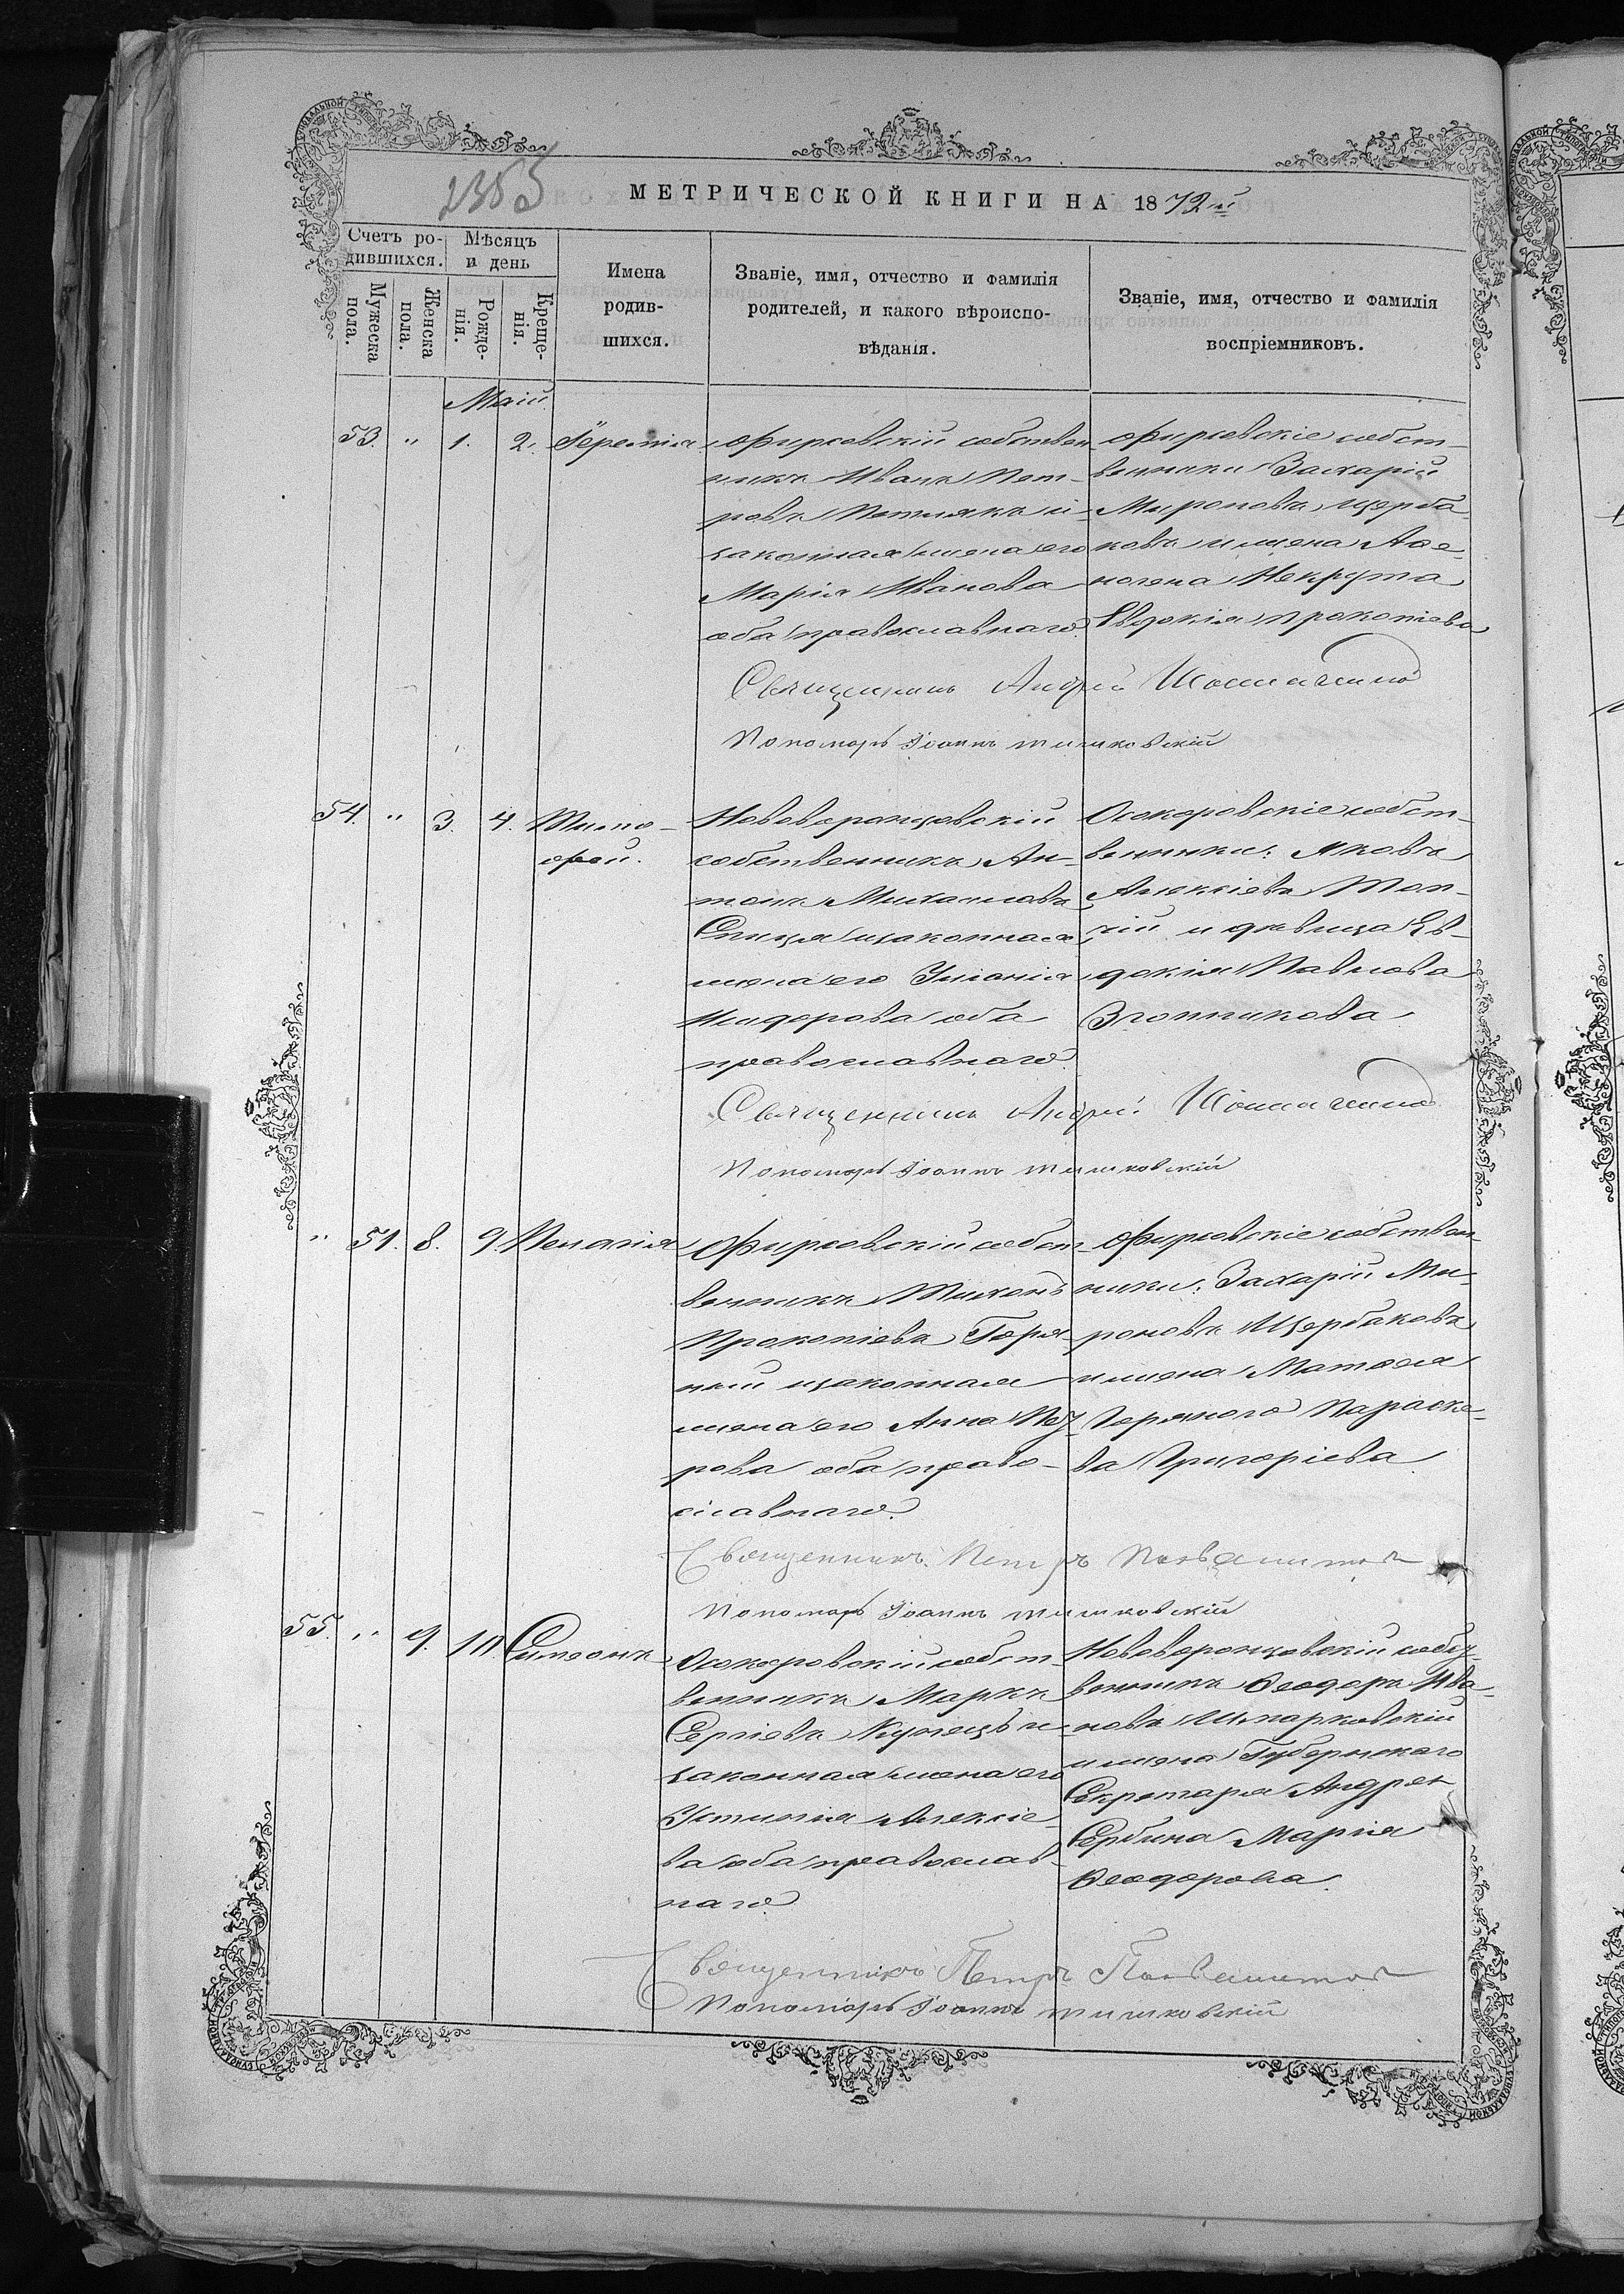 2383
МЕТРИЧЕСКОЙ КНИГИ НА 1872й
Счетъ ро-
дившихся.
Мѣсяцъ
и день
Мужеска
пола.
Женска
пола.
Рожде-
нія.
Креще-
нія.
Имена
родив-
шихся.
Званіе, имя, отчество и фамилія
родителей, и какого вѣроиспо-
вѣданія.
Званіе, имя, отчество и фамилія
воспріемниковъ.
Маій
53. " 1. 2. Іеремія
Фирсовскій собствен
никъ Иванъ Пет-
ровъ и
законная жена его
Марія Иванова
оба православнаго.
Фирсовскіе собст-
венники Захарій
Мироновъ Щерба-
ковъ и жена
Некрута
Евдокія Прокопіева
Священникъ Андрей
Пономарь Іоаннъ Тишковскій
54. " 3. 4. Тимо-
фей.
Нововоронцовскій
собственникъ Ан-
тонъ Михаиловъ
Спица и законная
жена его Уліанія
Исидорова оба
православнаго.
Осокоровскіе собст-
венники: Яковъ
Алексіевъ Топ-
чій и дѣвица Ев-
докія Павлова
Згонникова.
Священникъ Андрей
Пономарь Іоаннъ Тишковскій
" 51. 8. 9. Пелагія
Фирсовскій собст-
венникъ Тихонъ
Прокопіевъ Горя-
ный и законная
жена его Анна Пет-
рова оба право-
славнаго.
Фирсовскіе собствен-
ники: Захарій Ми-
роновъ Щербаковъ
и жена Матѳея
Горяного Параске-
ва Григоріева.
Священникъ Петръ
Пономарь Іоаннъ Тишковскій
55. " 9. 10. Симеонъ
Осокоровскій собст-
венникъ Маркъ
Сергіевъ Купецъ и
законная жена его
Устинія Алексіе-
ва оба православ-
наго.
Нововоронцовскій собст-
венникъ Ѳеодоръ Ива-
новъ Шпарковскій
и жена Губернскаго
Секретаря Андрея
Сербина Марія
Ѳеодорова.
Священникъ Петръ
Пономарь Іоаннъ Тишковскій